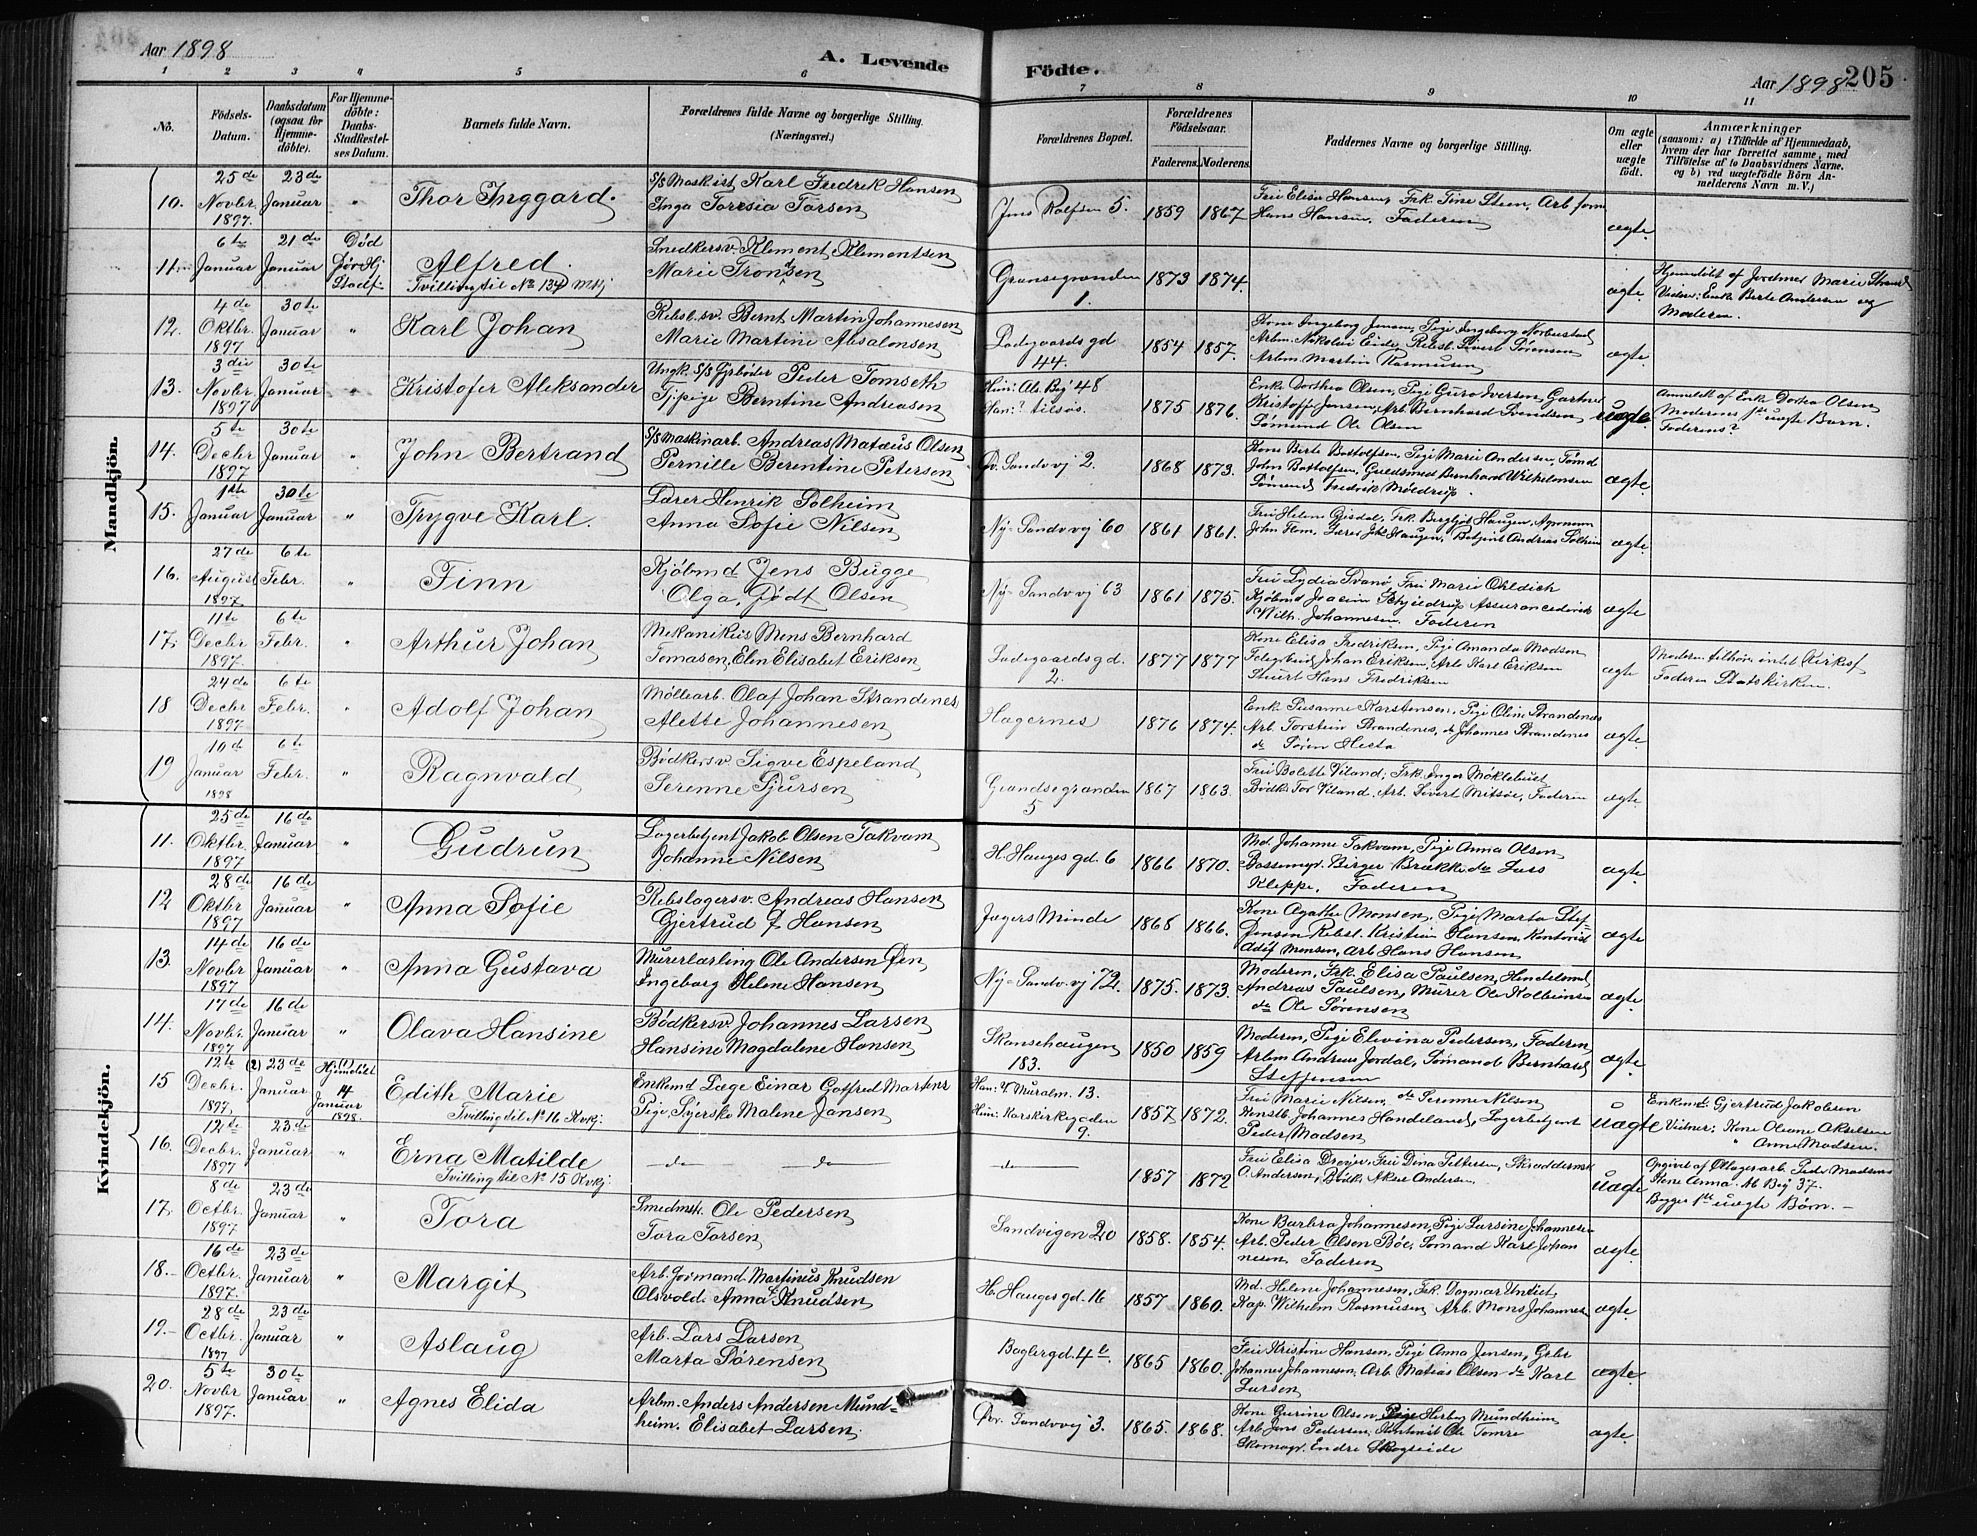 Aar 1898
A. Levende
Födte.
Aar 1898
205
1 2 3 4 5 6 7 8 9 10 11
No.
Födsels-Datum.
Daabsdatum (ogsaa for Hjemme-döbte).
For Hjemme-döbte: Daabs-Stadfæstel-ses Datum.
Barnets fulde Navn.
Forældrenes fulde Navne og borgerlige Stilling.
(Næringsvei.)
Forældrenes Bopæl.
Forældrenes Födselsaar.
Faderens. Moderens.
Faddernes Navne og borgerlige Stilling.
Om ægte eller uægte födt.
Anmærkninger
(saasom: a) i Tilfælde af Hjemmedaab,
hvem der har forrettet samme, med
Tilföielse af to Daabsvidners Navne,
og b) ved uægtefödte Börn An-
melderens Navn m. V.)
Mandkjön.
10. 25de Novbr 1897. 23de Januar " Thor Inggard.
S/S Maskist Karl Fredrik Hansen
Inga Toresia Torsen
Jens Rolfsen 5. 1859 1867
Frü Elise Hansen, Frk. Tine Steen, Arb. form
Hans Hansen, Faderen
ægte.
11. 6te Januar 21de Januar Død før Hj. Stadf. Alfred.
Tvilling til No 134 Mkj
Snedkersv. Klement Klementsen
Marie Tronsen
Grænsegrænden 1. 1873 1874. ægte.
Hjemdöbt af Jordmor Marie Strand
Vidner: Enke Berte Andersen og
Moderen.
12. 4de Oktbr. 1897 30te Januar " Karl Johan
Rebsl.sv. Bernt Martin Johannesen
Marie Martine Absalonsen
Ladegaardsgd 44. 1854 1857.
Kone Ingeborg Jensen, Pige Ingeborg
Arbm. Nikolai Eide, Rebsl. Sivert Sørensen
Arbm. Martin Rasmussen
ægte.
13. 3die Novbr. 1897 30te Januar " Kristofer Aleksander
Ungk. S/S Fyrbøder Peder Tomseth
Tj.pige Berntine Andreasen
Hun: Al. Beÿ 48
Han: ? tilsøs.
1875 1876.
Enke Dorthea Olsen, Pige Guro Iversen, Gartner
Kristoffer Jensen, Arb. Bernhard
Sömand Ole Olsen
uægte.
Anmeldt af Enke Dortea Olsen
Moderens 1ste uægte Barn.
Faderens?
14. 5te Decbr 1897 30te Januar " John Bertrand
S/S Maskinarb. Andreas Matæus Olsen
Pernille Berentine Petersen
Øv. Sandvvj 2. 1868 1873.
Kone Berte Bottolfsen, Pige Marie Andersen, Sömd
John Bottolfsen, Guldsmed Bernhard Wilhelmsen
Sömand Fredrik Møldrup.
ægte.
15. 1ste Januar 30te Januar " Trygve Karl.
Lærer Henrik Solheim
Anna Sofie Nilsen
Ny-Sandvvj 60 1861 1861.
Frü Helene Gjesdal, Frk. Bergljot Haugen, Agronom
John Flem, Lærer Haugen, Betjent Andreas Solheim
ægte.
16. 27de August 1897 6te Febr. " Finn
Kjöbmd Jens Bugge
Olga, Födt Olsen
Ny-Sandvvj 63 1861 1875.
Frü Lydia Svanø, Frü Marie Ohldieck
Kjöbmd Joacim Schjelderup
Wilh. Johannesen. Faderen
ægte
17. 11te Decbr 1897. 6te Febr. " Arthur Johan
Mekanikus Mons Bernhard
Tomasen, Elen Elisabet Eriksen
Ladegaardsgd. 2. 1877 1877
Kone Elisa Fredriksen, Pige Amanda Madsen
Telegr.bud Johan Eriksen, Arb. Karl Eriksen
Stuert Hans Fredriksen
ægte
Moderen tilhør. intet Kirkesf.
Faderen Statskirken.
18 24de Decbr 1897. 6te Febr. " Adolf Johan
Möllearb. Olaf Johan Strandenes,
Alette Johannesen
Hægernes 1876 1874.
Enk. Susanne Karstensen, Pige Oline Strandenes
Arb. Torstein Strandenes, do Johannes Strandenes
do Sören Hesta
ægte.
19 10de Januar 1898 6te Febr. " Ragnvald
Bödkersv. Sigve Espeland
Serenne Sjursen
Grændsegrænden 5 1867 1863.
Frü Bolette Viland, Frk. Inger Möklebust
Bödk. Tor Viland, Arb. Sivert Mitsøe, Faderen
ægte.
Kvindekjön.
11. 25de Oktbr. 1897 16de Januar " Gudrun
Lagerbetjent Jakob Olsen Takvam
Johanne Nilsen
H. Haugesgd. 6 1866 1870.
Md. Johanne Takvam, Pige Anna Olsen
Birger Brække do Lars
Kleppe, Faderen
ægte.
12 28de Oktbr 1897 16de Januar " Anna Sofie
Rebslagersv. Andreas Hansen
Gjertrud f. Hansen
Jægers Minde 1868 1866.
Kone Agathe Monsen, Pige Marta Stef-
fensen Rebsl. Kristian Hansen, Kontorist
Adolf Monsen, Arb. Hans Hansen
ægte.
13. 14de Novbr. 1897 16de Januar " Anna Gustava
Murerlærling Ole Andersen Øen
Ingeborg Helene Hansen
Ny-Sandv.vj 72. 1875. 1873.
Moderen, Frk. Elisa Paulsen, Handelsmd
Andreas Paulsen, Murer Ole Kolbeinsen
do Ole Sørensen
ægte.
14. 17de Novbr. 1897 16de Januar " Olava Hansine
Bödkersv. Johannes Larsen
Hansine Magdalene Hansen
Skansehaugen 183. 1850 1859
Moderen, Pige Elevina Pedersen, Faderen,
Arbm Andreas Jordal, Sömand Bernhard
Steffensen
ægte.
15 12te Decbr. 1897. (2) 23de Januar (1) Hjemdöbt 14 Januar 1898. Edith Marie
Tvilling til No 16 Kvkj.
Enkemd Læge Einar Gotfred Martens
Pige, Syerske Malene Jansen
Han: V. Muralm. 13.
Hun: Korskirkegaden 9.
1857 1872.
Frü Marie Nilsen, do Serenne Nilsen
Konstb. Johannes Handeland, Lagerbetjent
Peder Madsen
uægte
Enkemd. Gjertrud Jakobsen
Vidner: Kone Oleane Akselsen
" Anne Madsen.
16. 12te Decbr. 1897 23de Januar " Erna Matilde
Tvilling til No 15 Kvkj.
do do
do
1857 1872
Frü Elisa Dreyer, Frü Dina Pettersen, Skræddermst.
O. Andersen, Bödk. Aksel Andersen.
uægte
Opgivet af Peder Madsens
Kone Anna. Al. Beÿ 37.
Begges 1ste uægte Børn.
17. 8de Octbr. 1897 23de Januar " Tora
Smedmstr. Ole Pedersen
Tora Torsen
Sandvigen 20 1858. 1854.
Kone Barbra Johannesen, Pige Larsine Johannesen
Arb. Peder Olsen Böe, Sömand Karl Johan
nesen Faderen
ægte.
18. 16de Octbr. 1897. 23de Januar " Margit
Arb. Formand Martinus Knudsen
Olsvold. Anna f. Knudsen
H. Haugesgd. 16 1857 1860.
Md. Helene Johannesen, Frk. Dagmar Undiet
Kap. Wilhelm Rasmusen, Arb. Mons Johannes
ægte.
19. 28de Octbr. 1897 23de Januar " Aslaug
Arb. Lars Larsen
Marta Sørensen
Baglergd. 4e 1865 1860.
Frü Kristine Hansen, Pige Anna Jensen, Grbr
Johannes Johannesen, Arb. Matias Olsen do Karl
Larsen
ægte.
20. 5te Novbr 1897. 30te Januar " Agnes Elida
Arbm. Anders Andersen Mund-
heim. Elisabet Larsen.
Øv. Sandvvj 3. 1865. 1868.
Kone Gurine Olsen, Pige Herborg Mundheim
Arb. Jens Pedersen, Kontorist Ole Tomre
Skomagr. Endre Skogseide
ægte.